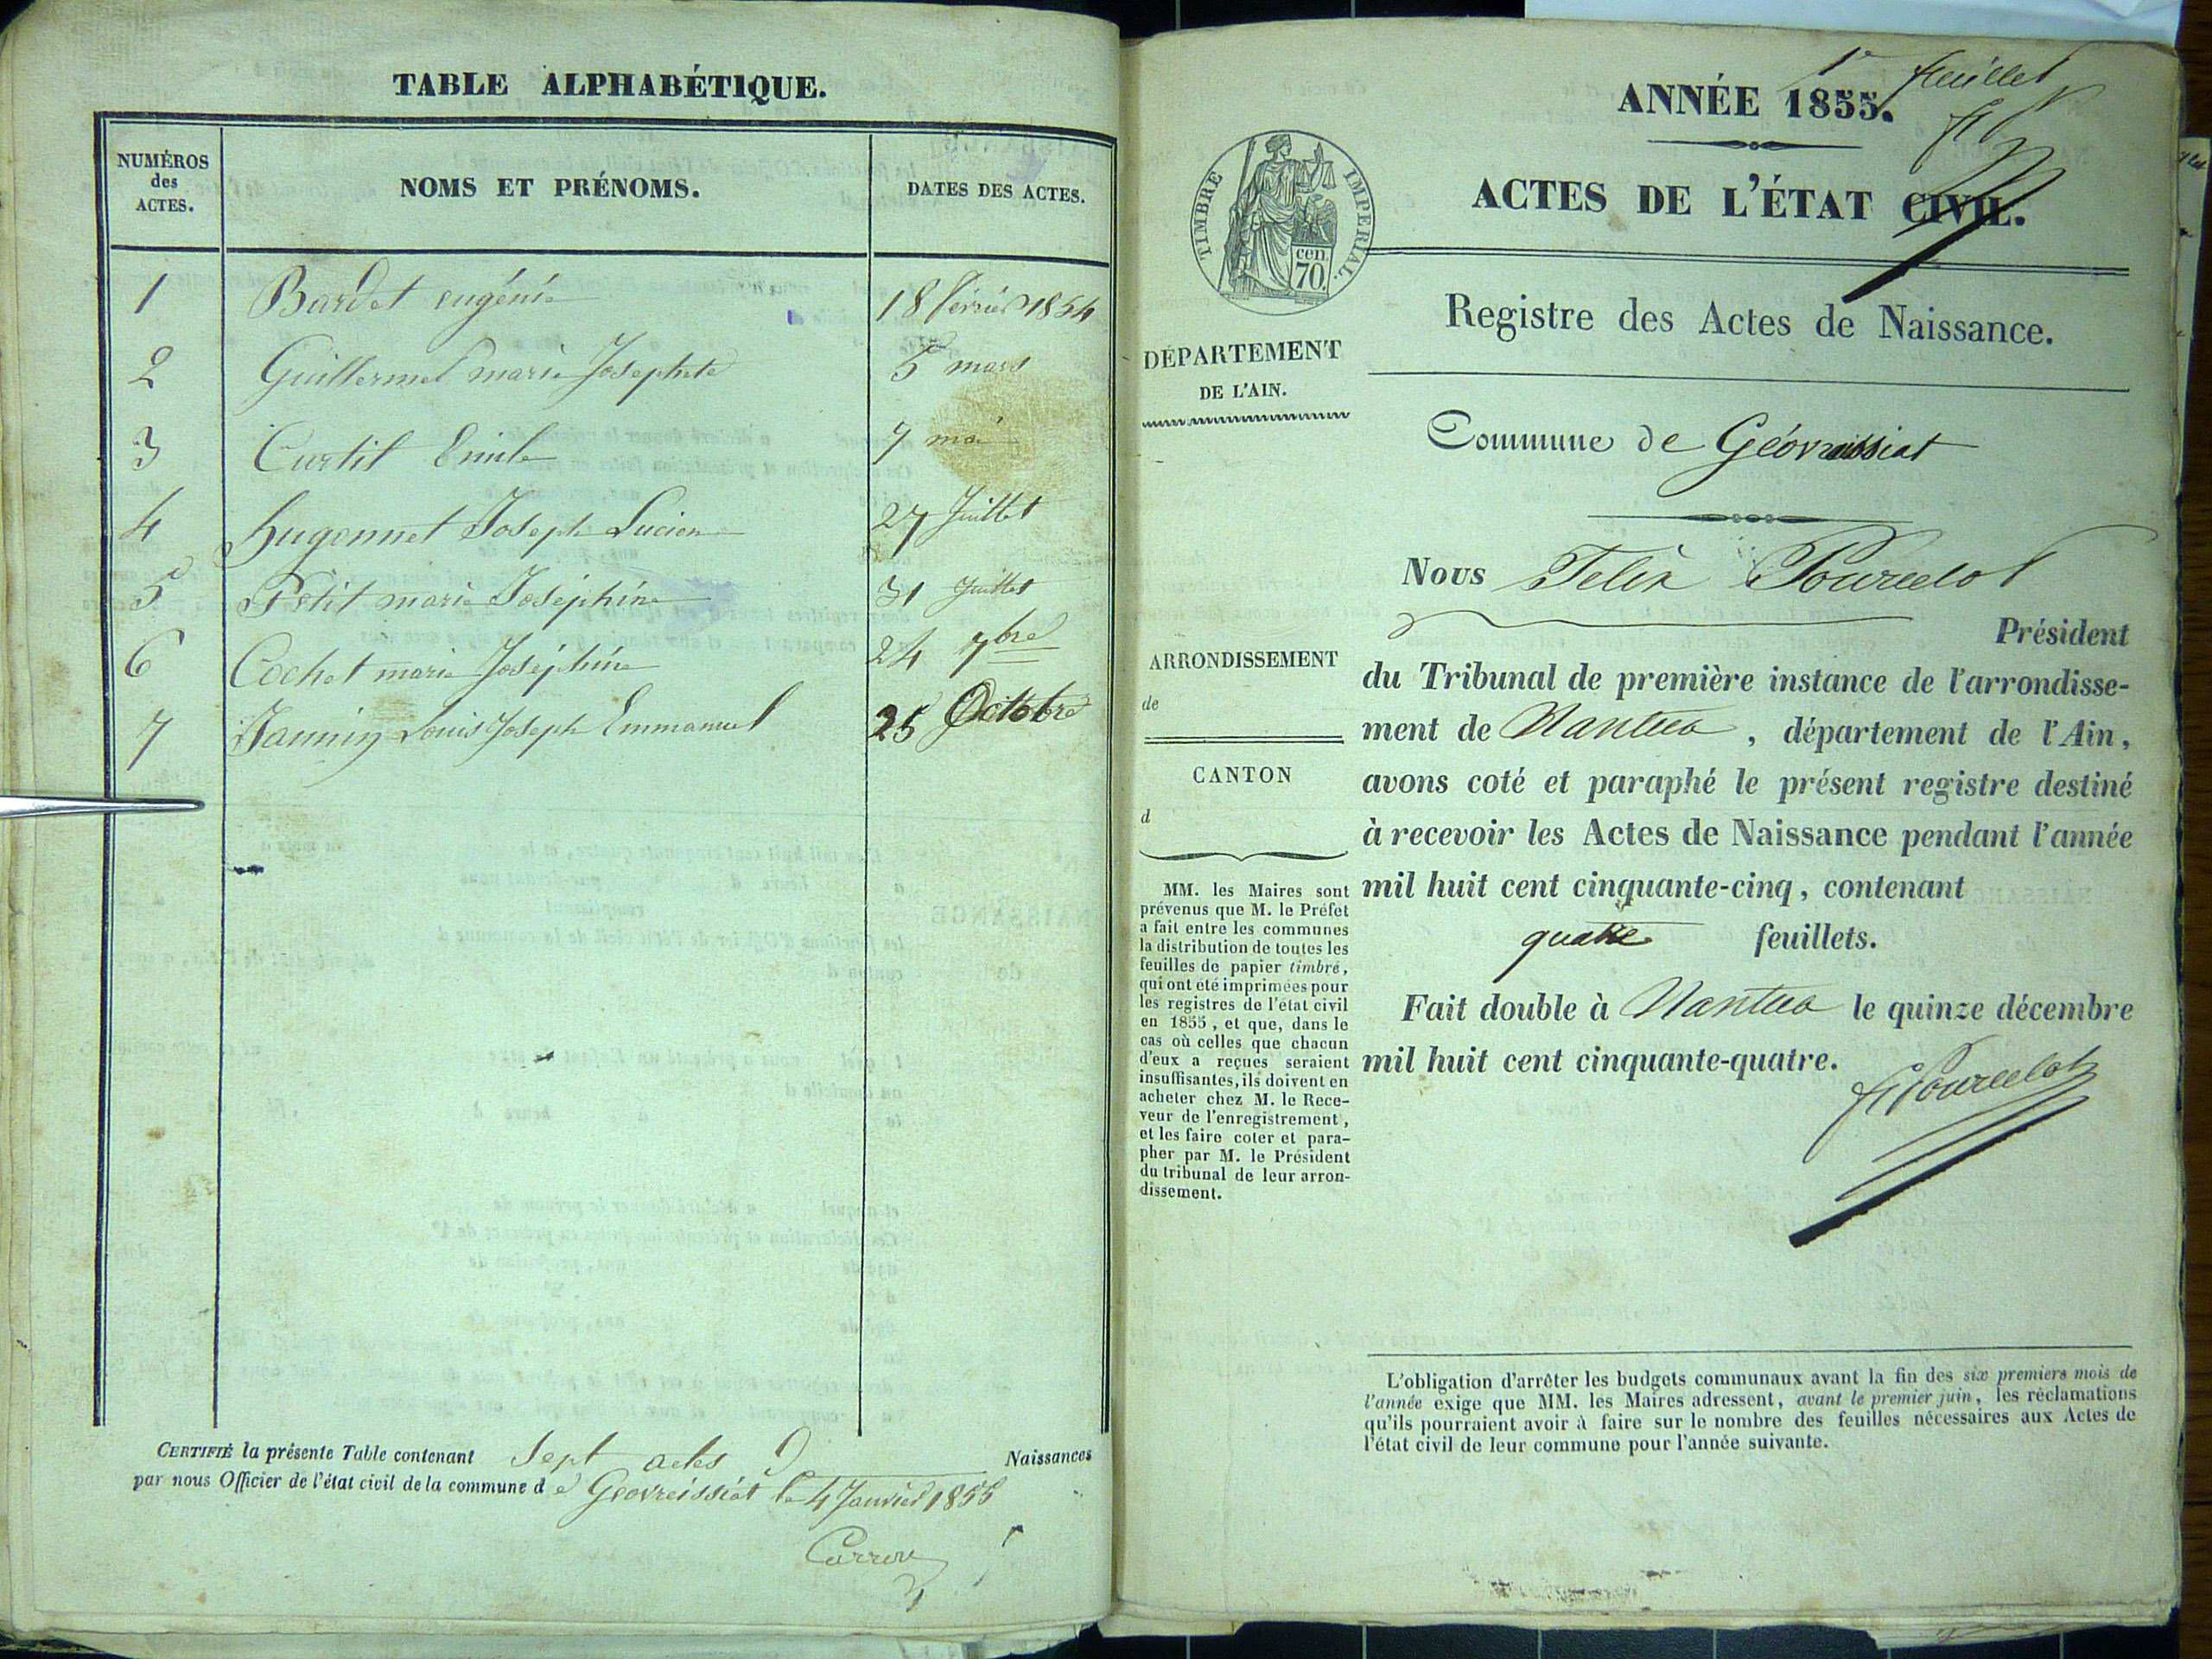 TABLE ALPHABÉTIQUE.
NUMÉROS
des
ACTES.
NOMS ET PRÉNOMS.
DATES DES ACTES.
1 Bardet eugénie 18 février 1854
2 Guillermet marie Josephete 5 mars
3 Curtil Emile 7 mai
4 hugonnet Joseph Lucien 27 Juillet
5 Petit marie Joséphine 31 Juillet
6 Cochet marie Joséphine 24 7bre
7 Jannin Louis Joseph Emmanuel 25 Octobre
CERTIFIÉ la présente Table contenant Sept actes Naissances
par nous Officier de l'état civil de la commune de Géovreissiat le 4 Janvier 1855
1er feuillet
ANNÉE 1855.
ACTES DE L'ÉTAT CIVIL.
TIMBRE IMPERIAL.
cen.
70.
Registre des Actes de Naissance.
DÉPARTEMENT
DE L'AIN.
Commune de Géovreissiat
Nous Felix Pourcelot
Président
ARRONDISSEMENT
de
CANTON
d
du Tribunal de première instance de l'arrondisse-
ment de Nantua, département de l'Ain,
avons coté et paraphé le présent registre destiné
à recevoir les Actes de Naissance pendant l'année
mil huit cent cinquante-cinq, contenant
quatre feuillets.
Fait double à Nantua le quinze décembre
mil huit cent cinquante-quatre.
F Pourcelot
MM. les Maires sont
prévenus que M. le Préfet
a fait entre les communes
la distribution de toutes les
feuilles de papier timbré,
qui ont été imprimées pour
les registres de l'état civil
en 1855, et que, dans le
cas où celles que chacun
d'eux a reçues seraient
insuffisantes, ils doivent en
acheter chez M. le Rece-
veur de l'enregistrement,
et les faire coter et para-
pher par M. le Président
du tribunal de leur arron-
dissement.
L'obligation d'arrêter les budgets communaux avant la fin des six premiers mois de
l'année exige que MM. les Maires adressent, avant le premier juin, les réclamations
qu'ils pourraient avoir à faire sur le nombre des feuilles nécessaires aux Actes de
l'état civil de leur commune pour l'année suivante.